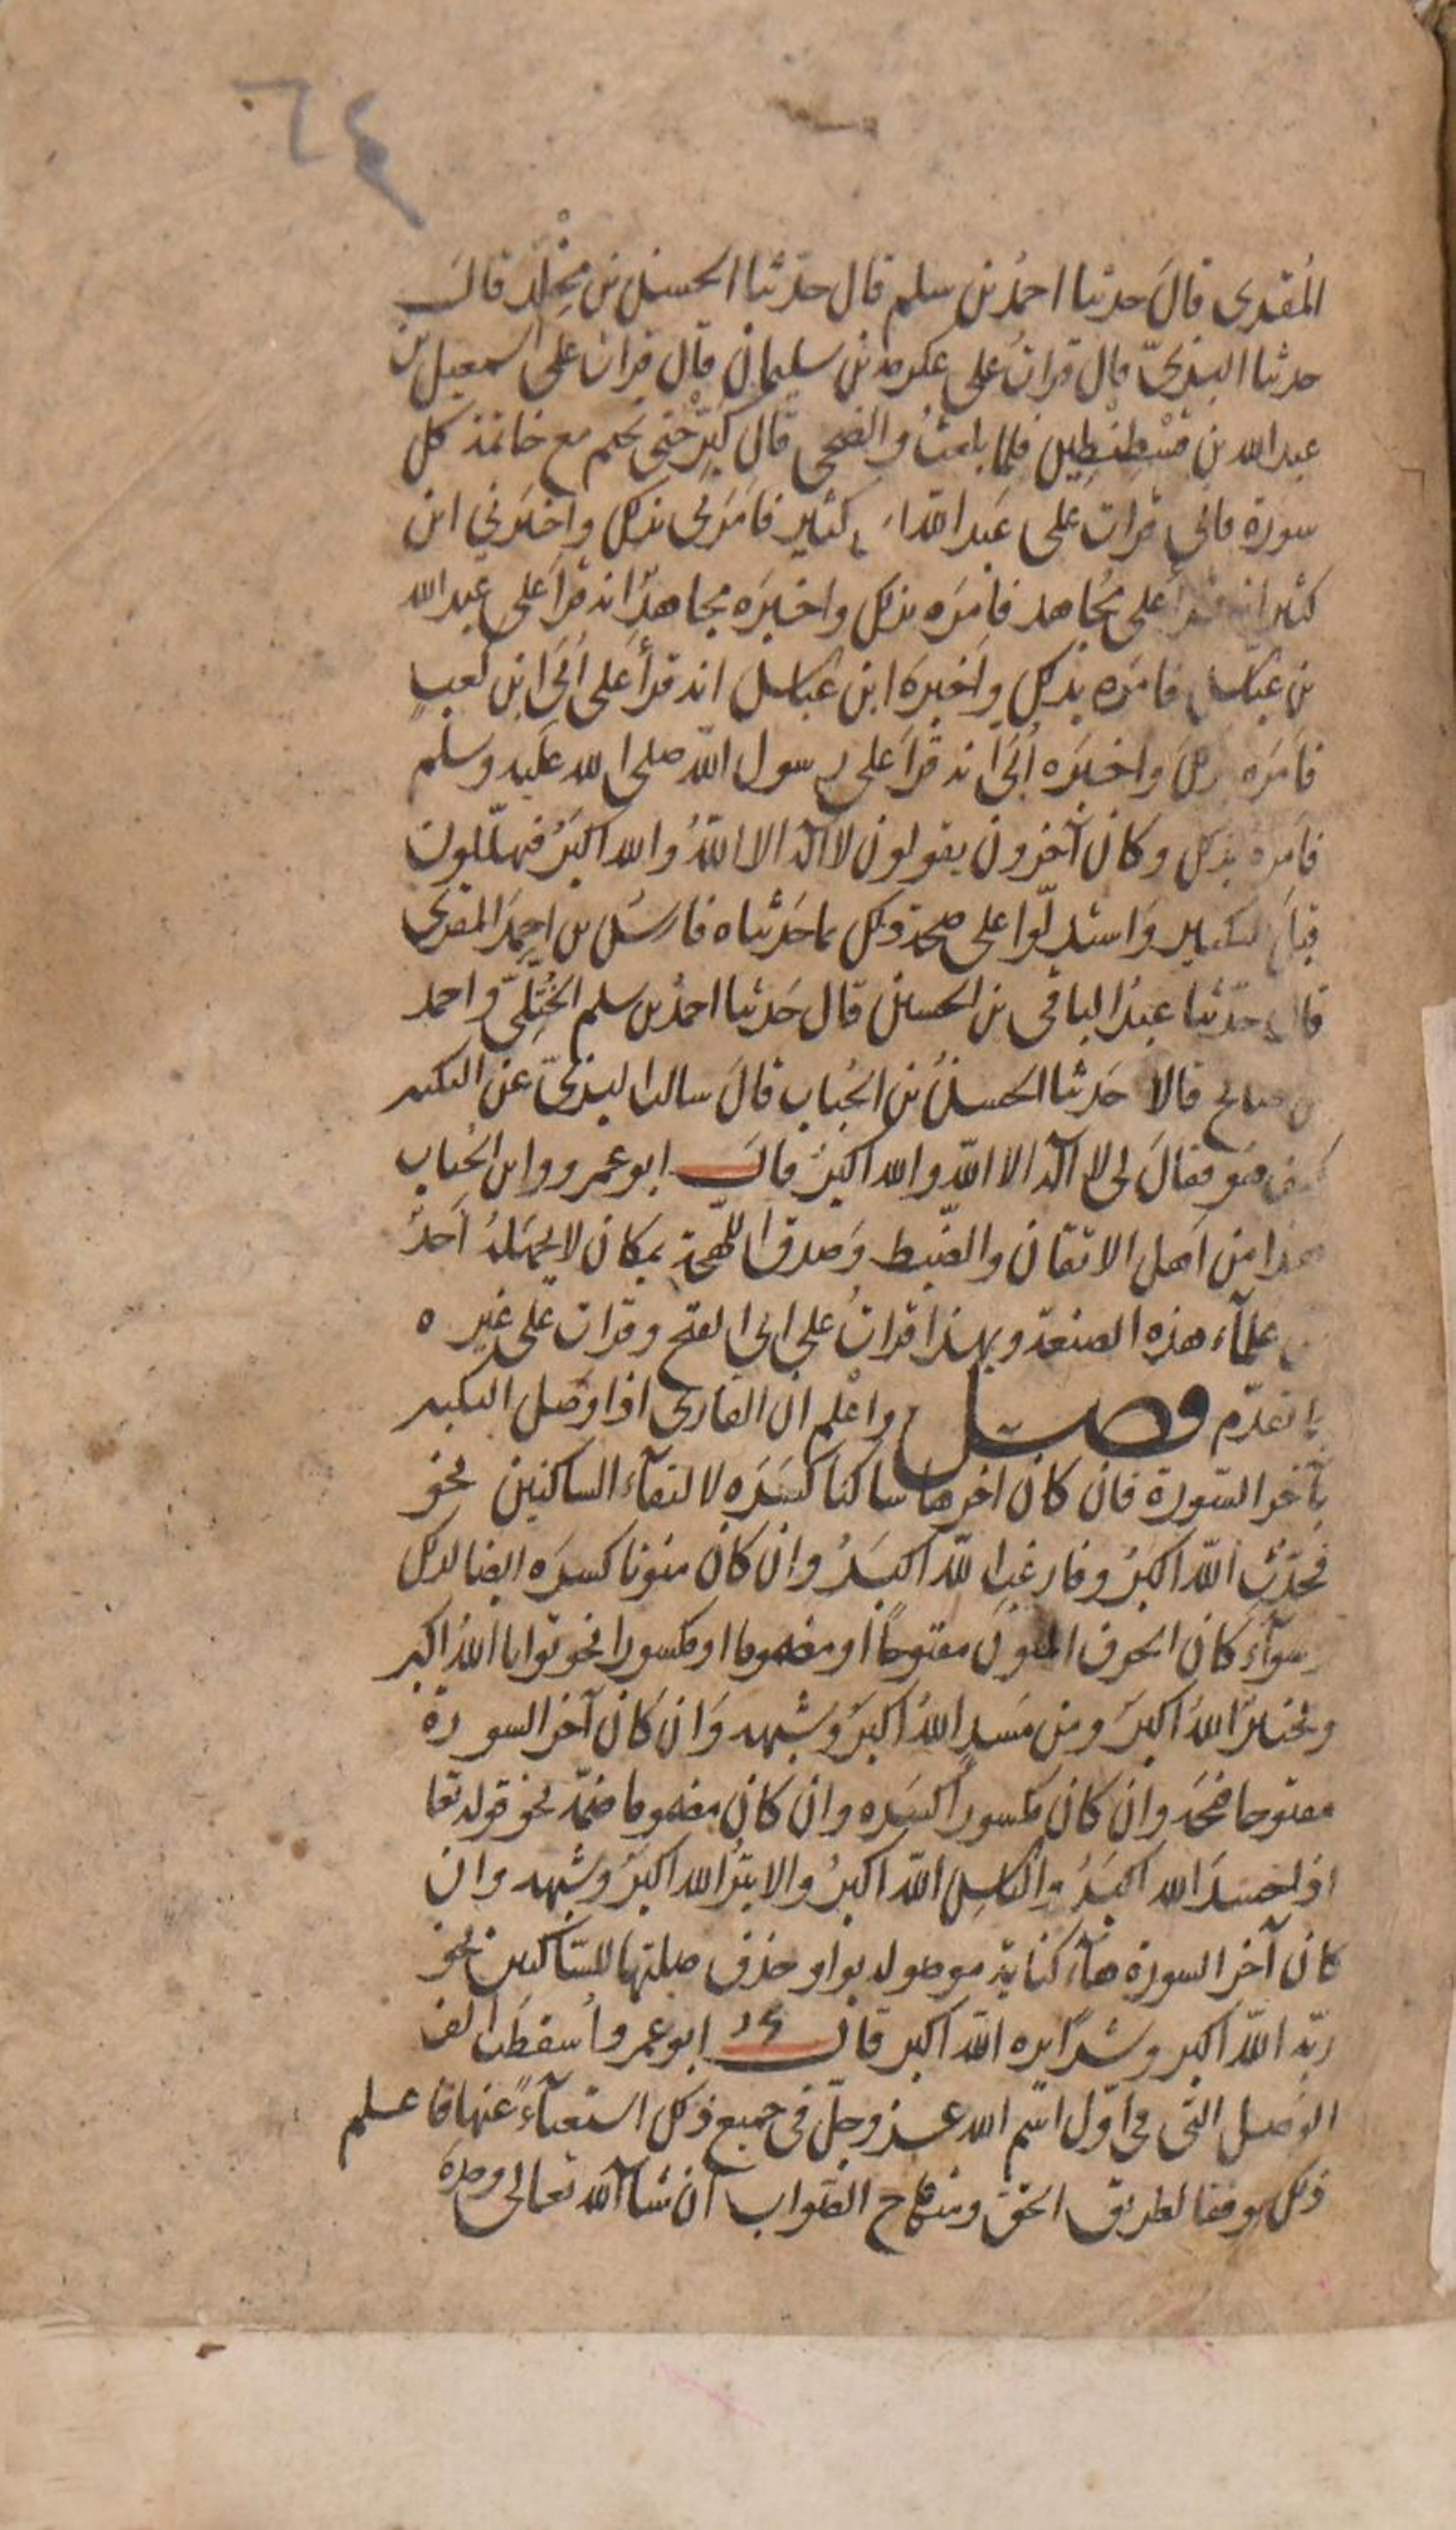 ٦٤
المُقرى قالَ حدثنا احمدُ بن سلم قال حدّثنا الحسنُ بن مَخْلَدٍ قالَ
حدثنا البزىّ قال قراتُ على عكرمه بن سليمان قال قرات على اسمعيل بن
عبد الله بن قسْطِنْطِين فلما بلغتُ والضحى قال كَبِّرْ حتى تختم مع خاتمة كل
سورة فاني قرات على عَبد الله بن كثير فامَرَني بذلك واخبَرَني ابن
كثير انه قرأ على مُجاهد فامَرَه بذلك واخبَرَه مجاهدٌ انه قرأ على عبد الله
بن عبّاس فامَره بذلك واَخبرَه ابن عباس انه قرأ على اُبَىّ ابن كعبٍ
فامَرَه بذلك واخبَرَه اُبَىّ انه قرأ على رسول الله صلى الله عليه وسلم
فامره بذلك وكان آخرون يقولون لا اله الا اللهُ والله اكبرُ فيهلّلون
قبلَ التكبير وَاستدلّوا على صحة ذلك بما حَدّثناه فارسُ بن احمدَ المقرى
قال حدّثنا عبدُ الباقى بن الحسين قال حَدثنا احمدُ بن سلم الخُتَّلِىّ واحمد
بن صالح قالا حَدثنا الحسنُ بن الحُباب قالَ سالت البزىّ عن التكبير
كيف هو فقالَ لى لا اله الا الله والله اكبرُ قالَ ابو عمرو وابن الحُباب
هذا من اَهل الاتقان والضبط وَصدق اللهجة بمكان لا يجهَلهُ اَحدٌ
من علمآء هذه الصنعة وبهذا قراتُ على ابى الفتح وقرات على غيره
بما تقدّم فصل واعْلم ان القارى اذا وصَل التكبير
بآخر السّورة فان كان اخرها ساكنا كسَرَه لالتقآء الساكنين نحو
فحدّثِ اللهُ اكبرُ وفارغبِ اللهُ اكبَرُ وان كان منونا كسرَه ايضا لذلك
سوآءً كان الحرف المنون مفتوحًا او مضموما او مكسورا نحو توابا اللهُ اكبر
ولخبيرٌ اللهُ اكبرُ ومن مَسدٍ اللهُ اكبرُ وشبهه وَان كان آخر السورة
مفتوحا فتحَه وان كان مكسورًا كسَرَه وان كان مضموما ضمّه نحو قوله تعا
اذا حسدَ الله اكبَرُ والناسِ اللهُ اكبرُ والابترُ الله اكبرُ وشبهه وان
كان آخر السورة هآءَ كناية موصوله بواو حذف صلتها للسّاكنين نحو
ربّه اللهُ اكبر وشرّا يره اللهُ اكبر قال ابو عمرو اُسقطَت الف
الوَصل التى فى اوّل اسم الله عز وجلّ فى جميع ذلك استغنآءً عنها فاعلم
ذلك موفقا لطريق الحق ومنهاج الصّواب ان شآ الله تعالى وحدهَ